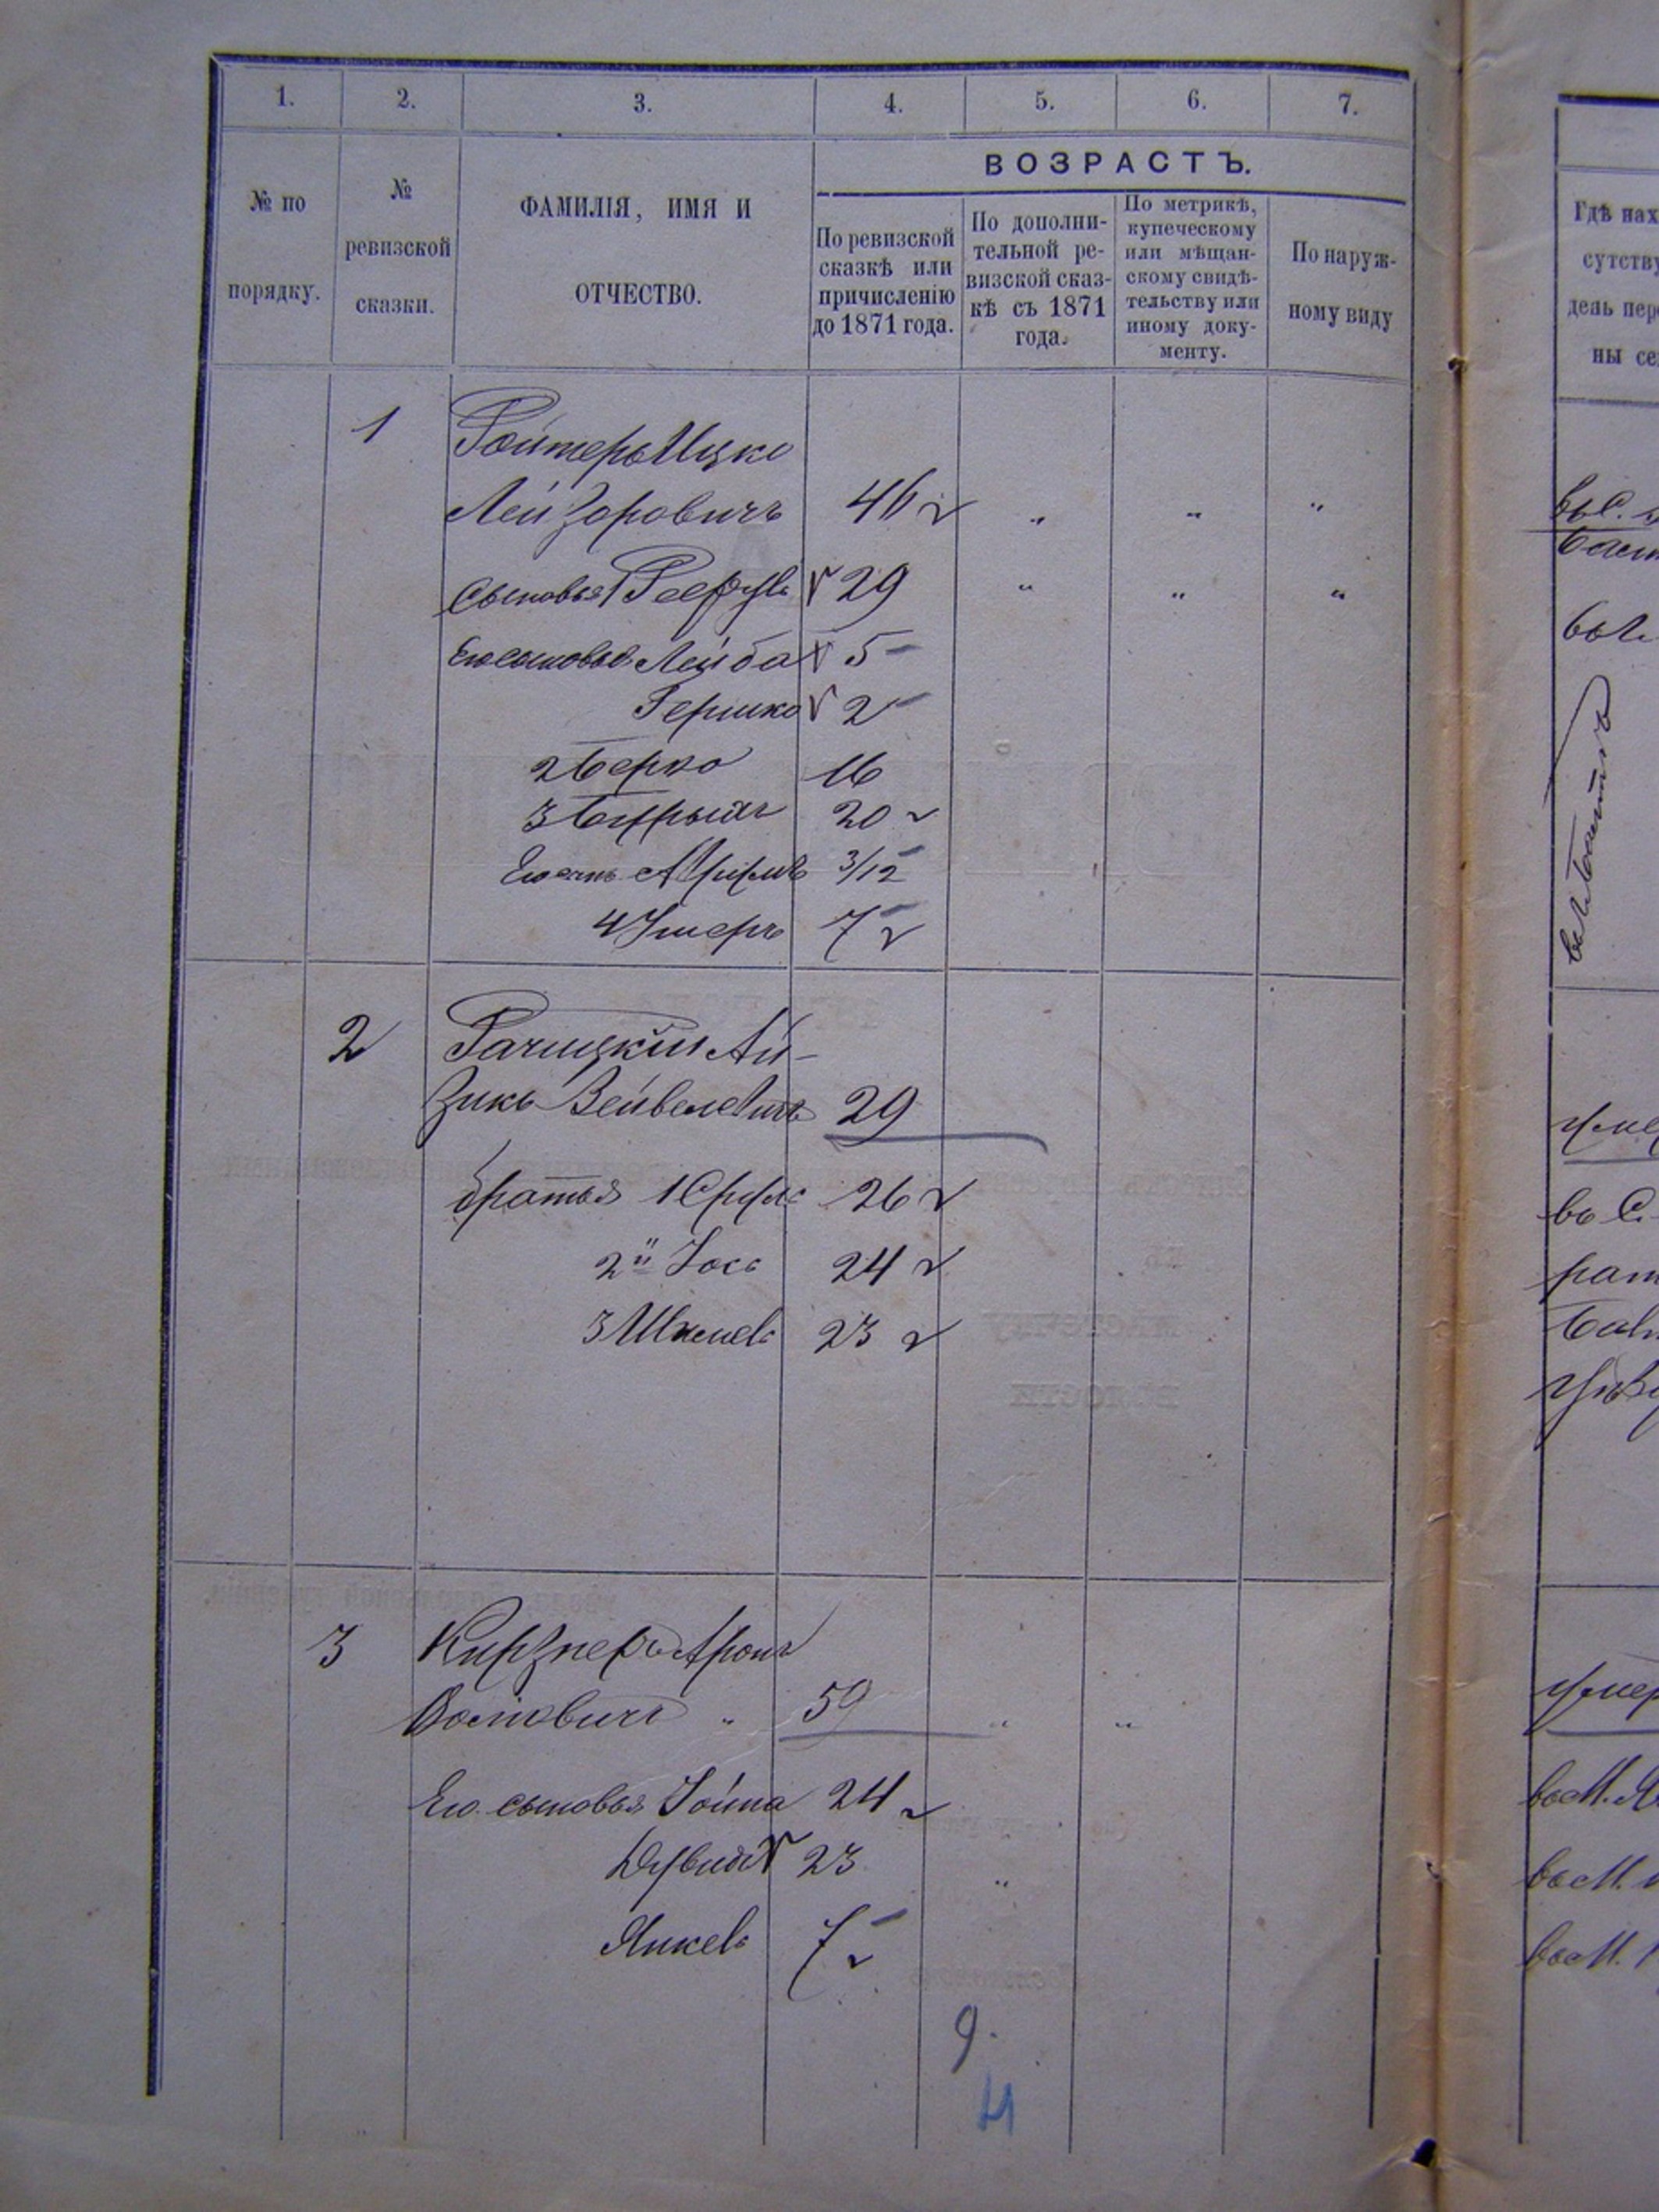 1. 2. 3. 4. 5. 6. 7.
№ по порядку.
№ ревизской сказки.
ФАМИЛІЯ, ИМЯ И ОТЧЕСТВО.
ВОЗРАСТЪ.
По ревизской сказкѣ или причисленію до 1871 года.
По дополнительной ревизской сказкѣ съ 1871 года.
По метрикѣ, купеческому или мѣщанскому свидѣтельству или иному документу.
По наружному виду
1 Ройтеръ Ицко
Лейзоровичъ 46 " " "
Сыновья 1 29 " " "
Его сыновья Лейба 5
Гершко 2
2 Берко 16
3 20
Его сынъ 3/12
4 Ушеръ 7
2 Рачицкій Ай-
зикъ Вейвелевичъ 29
братья 1 Сруль 26
2й Іось 24
3 23
3 Кирзнеръ Аронъ
Волковичъ " 59 " "
Его сыновья Іойна 24
Дувидъ 23 "
Янкевъ 7
9.
Гдѣ нах
сутству
дѣль пер
ны се
умер
въ С.
умер
въ М.
въ М.
въ М.